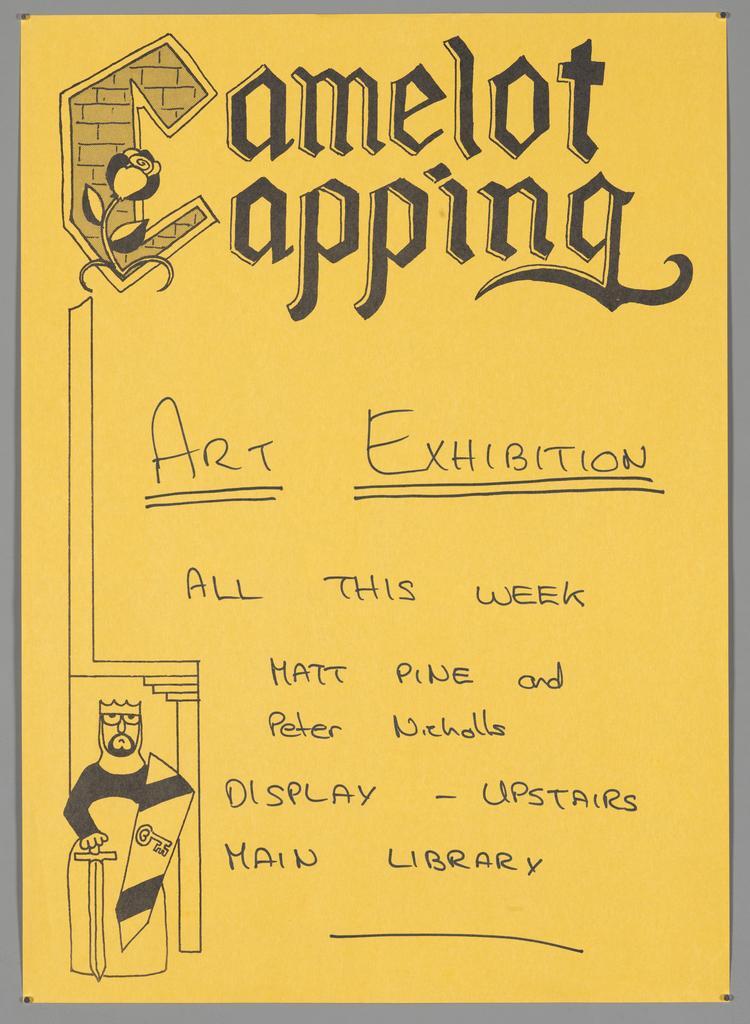 Camelot
Capping
ART EXHIBITION
ALL THIS WEEK
MATT PINE and
Peter Nicholls
DISPLAY - UPSTAIRS
MAIN LIBRARY